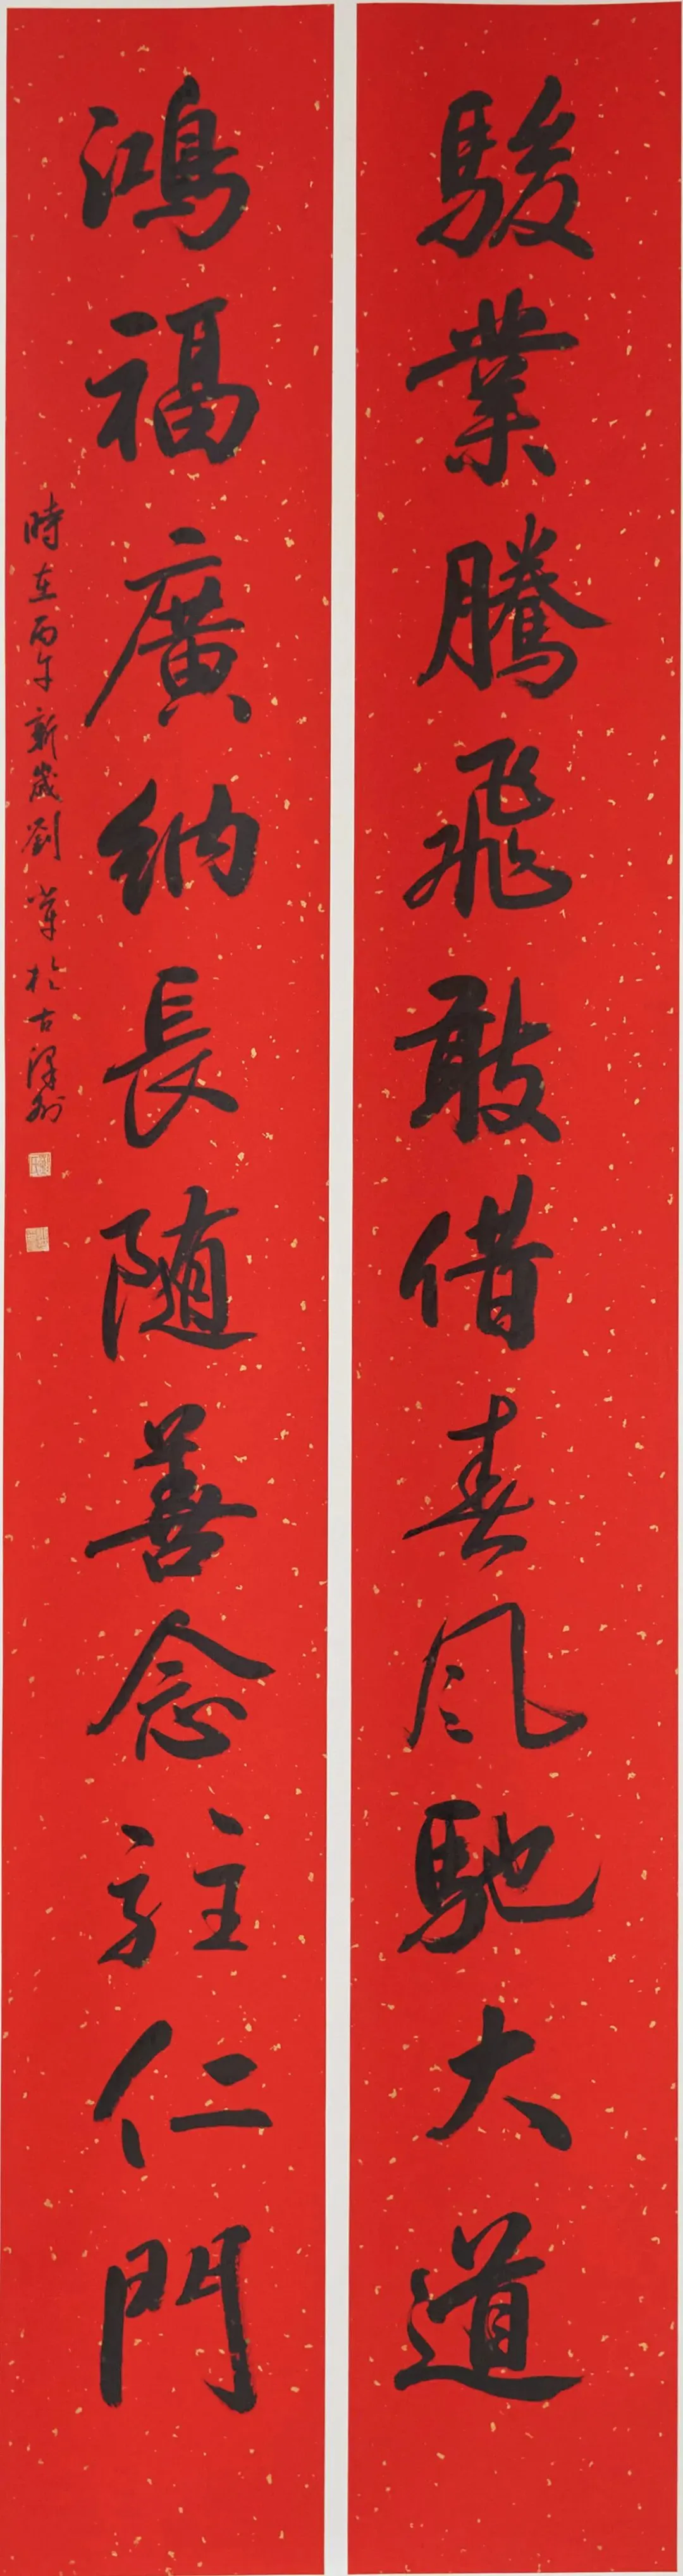 駿業騰飛敢借春风馳大道
鴻福廣納長随善念駐仁門
時在丙午新歲劉軍於古澤州